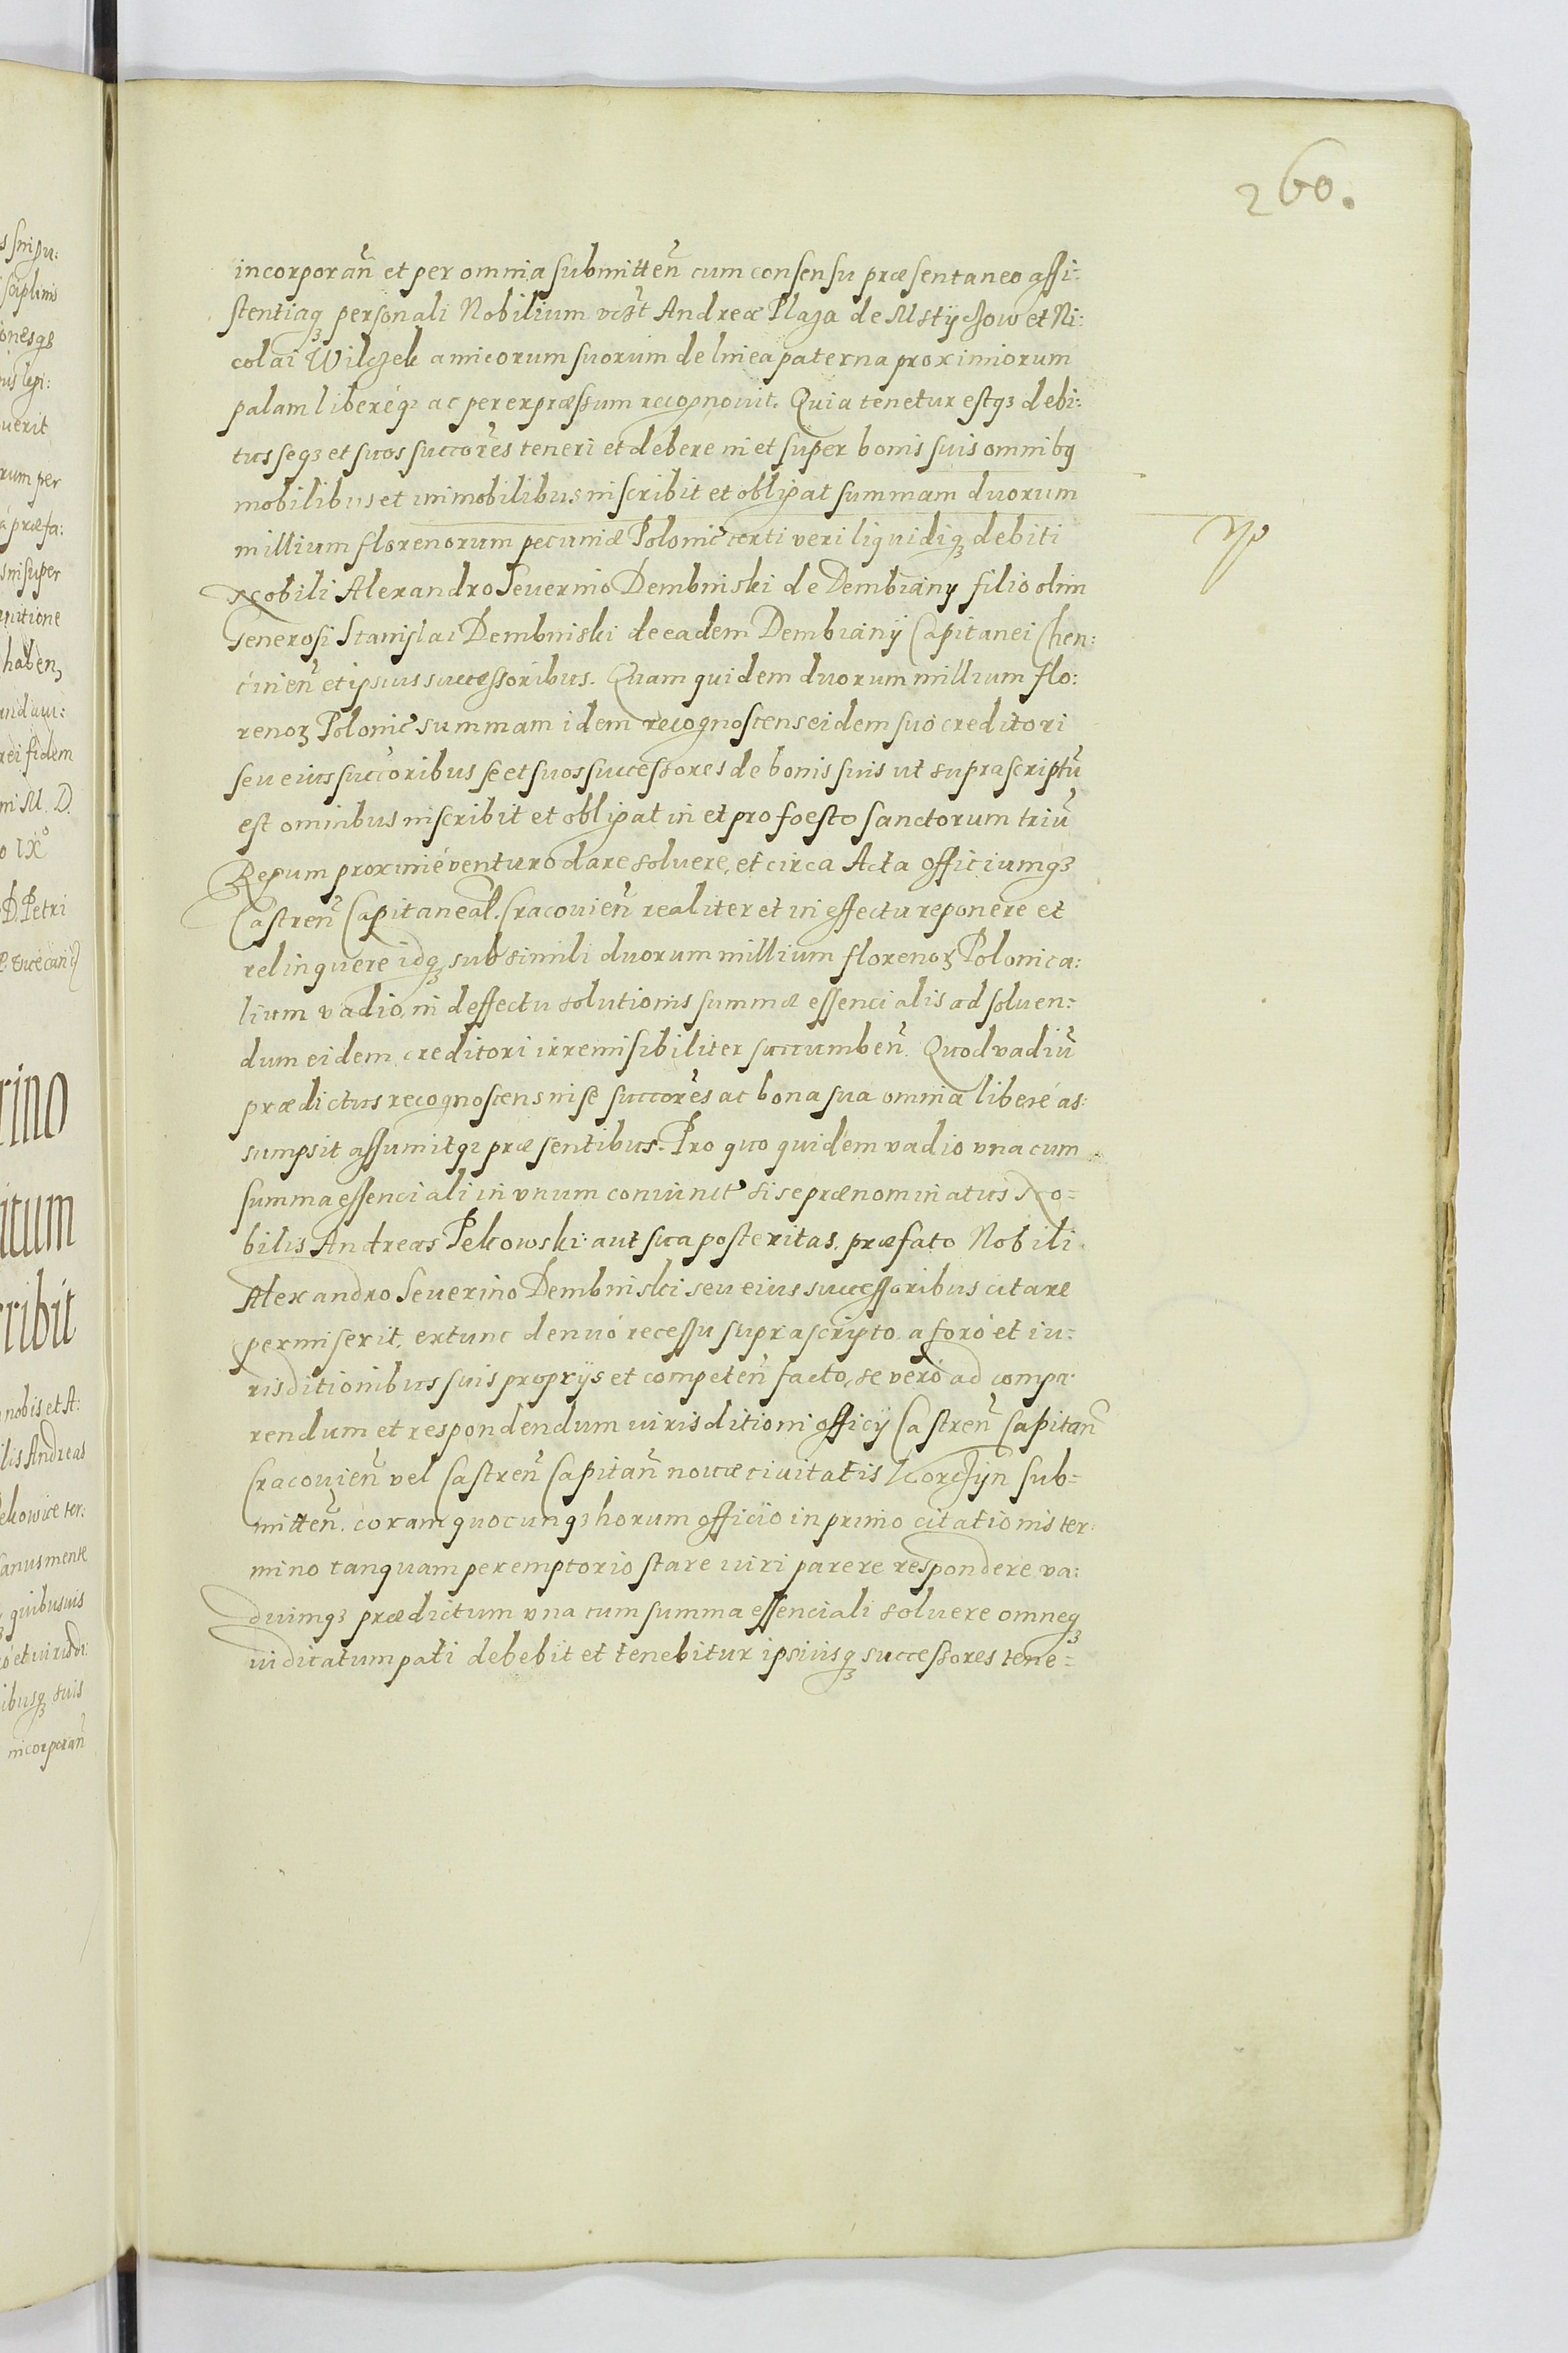 260.
incorporan̄ et per omnia submitten̄ cum consensu præsentaneo assi:
stentiaqꝫ personali Nobilium vc̄zt Andreæ Plaza de Mstyczow et Ni:
colai Wilczek amicorum suorum de linea paterna proximiorum
palam liberéqꝫ ac per expræssum recognouit. Quia tenetur estqꝫ debi:
tus seqꝫ et suos succōres teneri et debere in et super bonis suis omnibꝰ
mobilibus et immobilibus inscribit et obligat summam duorum
millium florenorum pecuniæ Polonic̄ certi veri liquidiqꝫ debiti
Nobili Alexandro Seuerino Dembinski de Dembiany filio olim
Generosi Stanislai Dembinski de eadem Dembiany Capitanei Chen:
cinen̄ et ipsius successoribus. Quam quidem duorum millium flo:
renoꝝ Polonic̄ summam idem recognoscens eidem suo creditori
seu eius succōribus se et suos successores de bonis suis ut suprascriptū
est omnibus inscribit et obligat in et pro foesto sanctorum triū
Regum proximé venturo dare soluere, et circa Acta officiumqꝫ
Castren̄ Capitaneal. Cracouien̄ realiter et in effectu reponere et
relinquere idqꝫ sub simili duorum millium florenoꝝ Polonica:
lium vadio, in deffectu solutionis summæ essencialis ad soluen:
dum eidem creditori irremisibiliter succumben̄. Quod vadiū
prædictus recognoscens in se succōres ac bona sua omnia liberé as:
sumpsit assumitqꝫ præsentibus. Pro quo quidem vadio vna cum
summa essenciali in vnum coniunct̄ si se prænominatus No=
bilis Andreas Pelcowski aut sua posteritas, præfato Nobili
Alexandro Seuerino Dembinski seu eius successoribus citare
permiserit, extunc denuó recessu suprascripto a foro et iu:
risditionibus suis proprijs et competen̄ facto, se veró ad compa:
rendum et respondendum iurisditioni officij Castren̄ Capitan̄
Cracouien̄ vel Castren̄ Capitan̄ nouæ ciuitatis Korczyn sub=
mitten̄. coram quocunqꝫ horum officio in primo citationis ter:
mino tanquam peremptorio stare iuri parere respondere va:
diumqꝫ prædictum vna cum summa essenciali soluere omneqꝫ
iudicatum pati debebit et tenebitur ipsiusqꝫ successores tene=